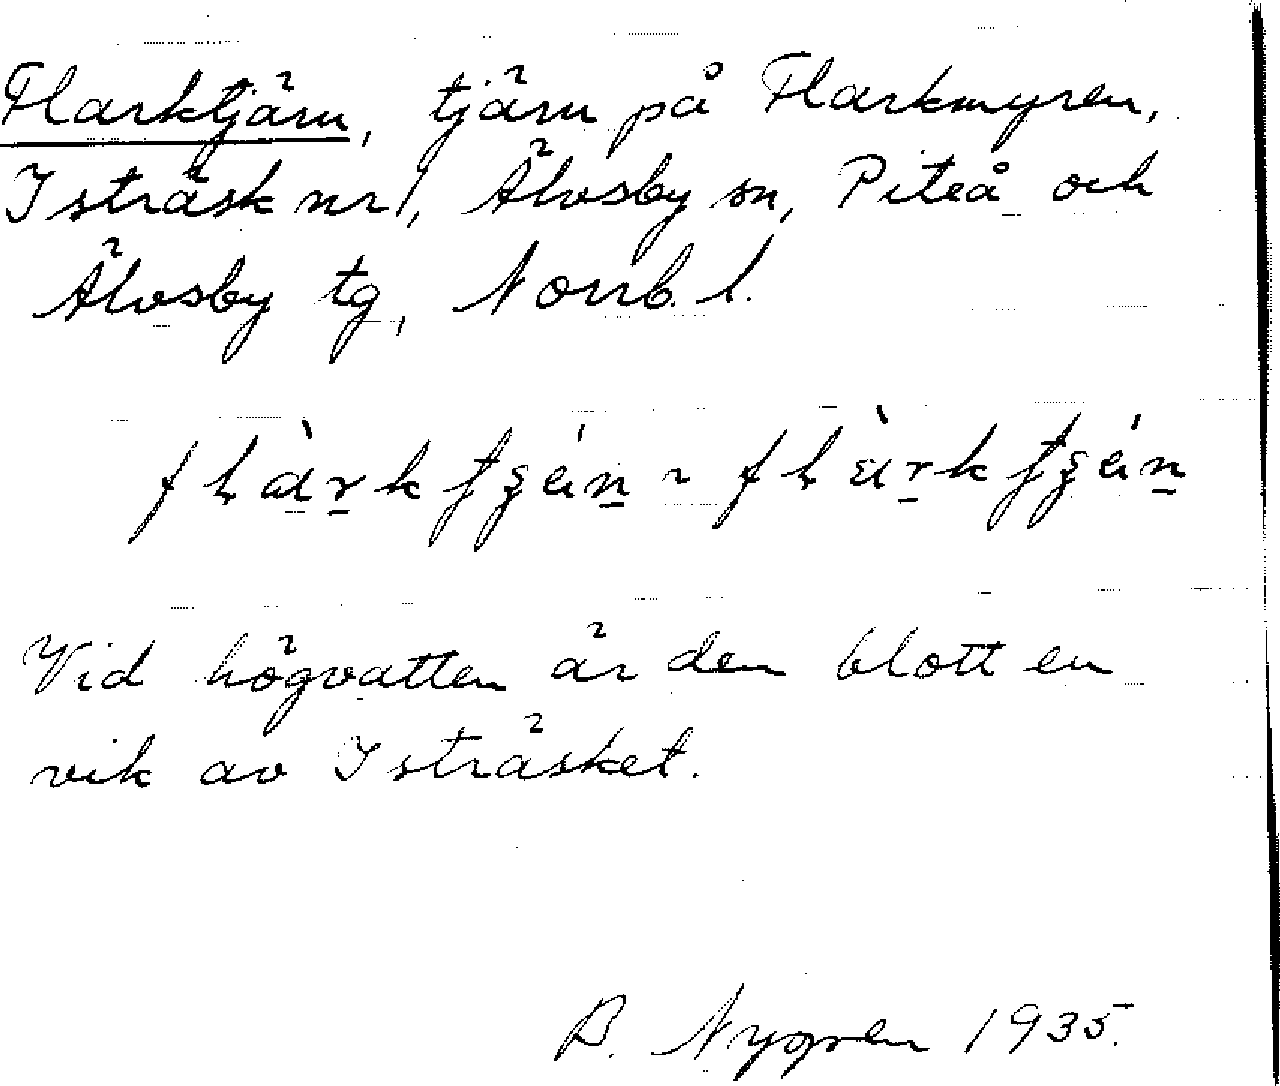 Flarktjärn, tjärn på Flarkmyren,
Isträsk nr 1, Älvsby sn, Piteå och
Älvsby tg, Norrb. l.
Vid högvatten är den blott en
vik av Isträsket.
B. Nygren 1935.